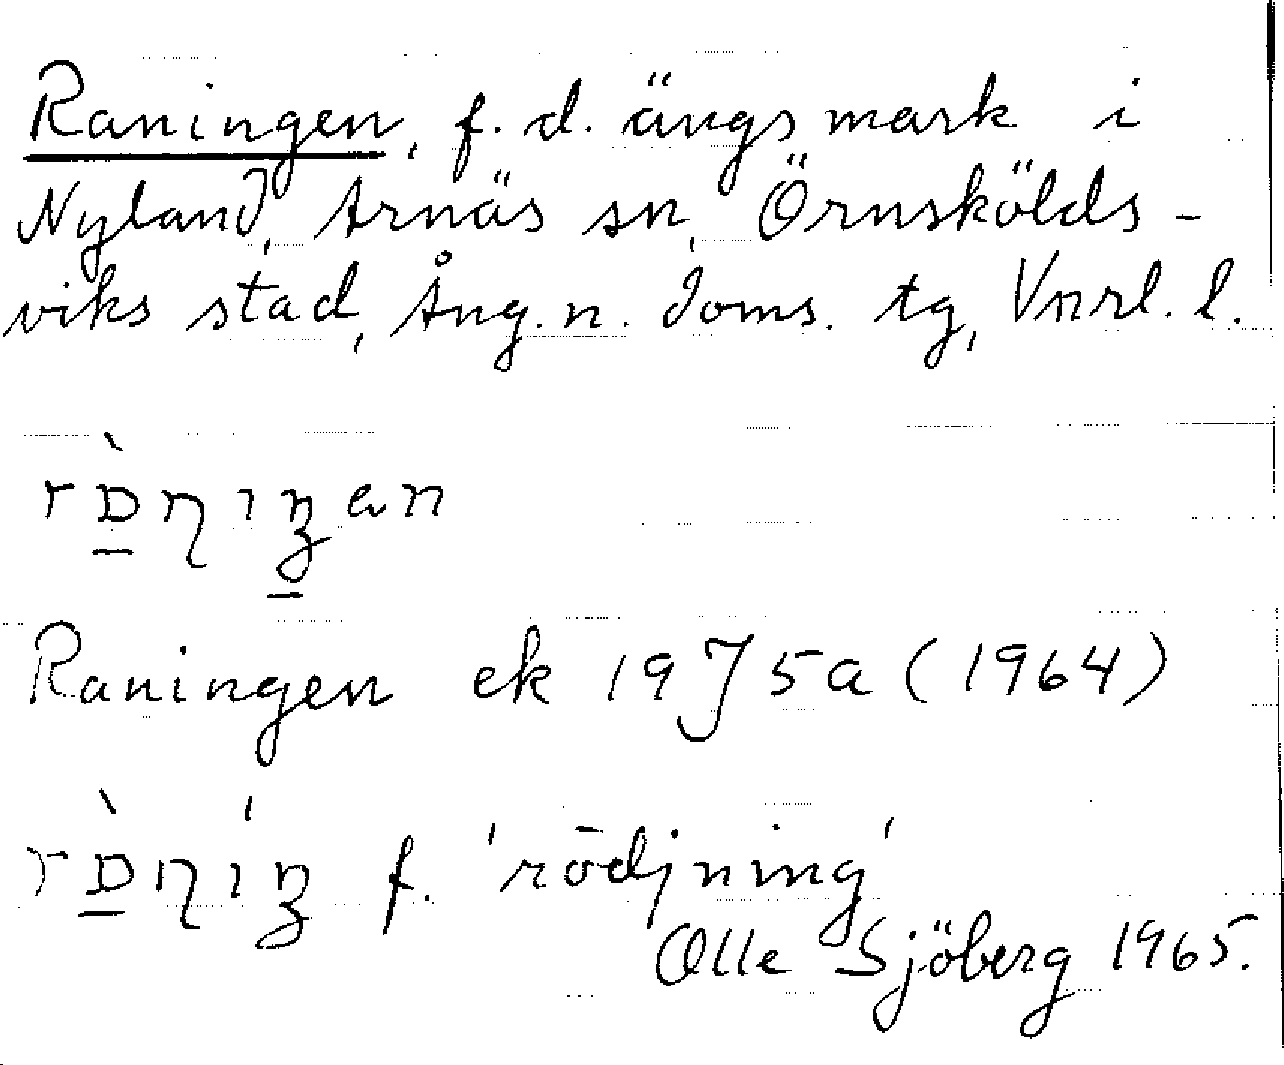 Raningen, f. d. ängsmark i
Nyland, Arnäs sn, Örnskölds-
viks stad, Ång. n. doms. tg, Vnrl. l.
Raningen ek 19 J 5a (1964)
f. 'rödjning'
Olle Sjöberg 1965.